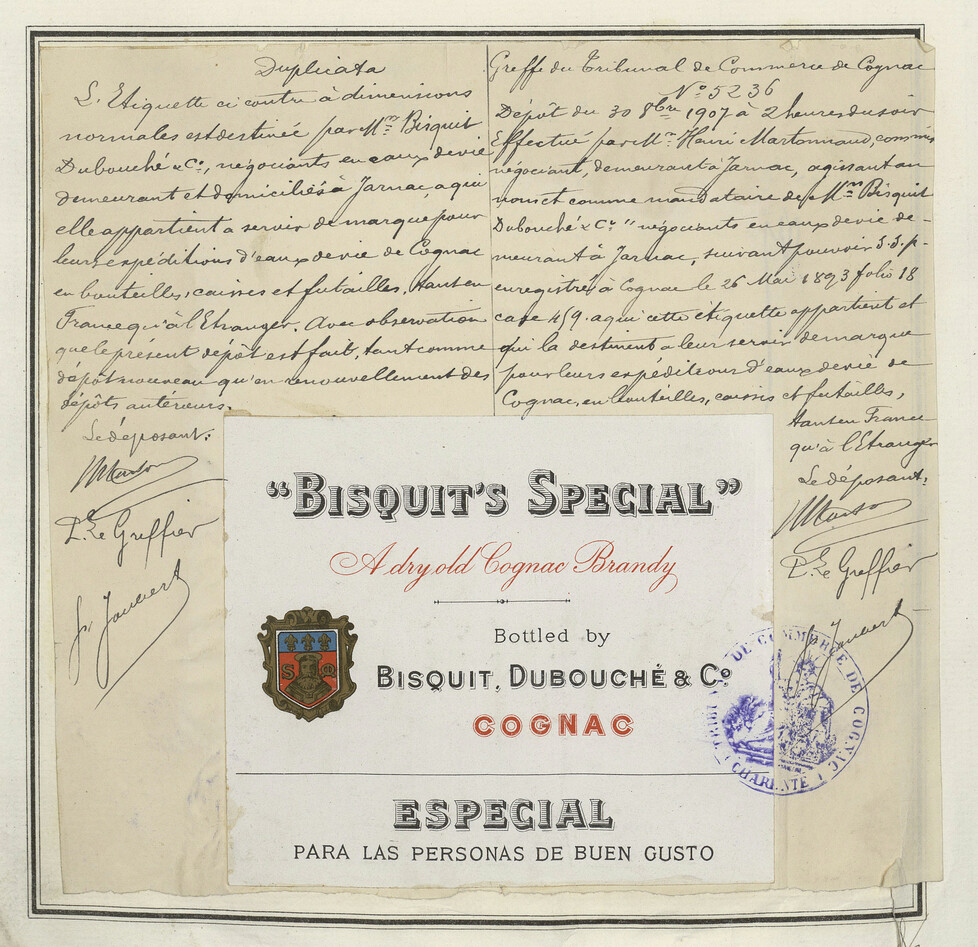 Duplicata
L'Etiquette ci contre à dimensions
normales est destinée par Mrs Bisquit
Dubouché & Co, négociants en eaux de vie
demeurant et domiciliés à Jarnac, a qui
elle appartient a servir de marque pour
leurs expéditions d'eaux de vie de Cognac
en bouteilles, caisses et futailles, tant en
France qu'à l'Etranger. Avec observation
que le présent dépôt est fait, tant comme
dépôt nouveau qu'en renouvellement des
dépôts antérieurs.
Le déposant:
P. Le Greffier
Joubert
Greffe du Tribunal de Commerce de Cognac
No 5236
Dépôt du 30 8bre 1907 à 2 heures du soir
Effectué par Mr Henri Martonnaud, commis
négociant, demeurant à Jarnac, agissant au
nom et comme mandataire de Mrs Bisquit
Dubouché & Co" négociants en eaux de vie de-
meurant à Jarnac, suivant pouvoir S.S.p.
enregistré à Cognac le 26 Mai 1893 folio 18
case 459. a qui cette étiquette appartient et
qui la destinent a leur servir de marque
pour leurs expéditions d'eaux de vie de
Cognac, en bouteilles, caisses et futailles,
tant en France
qu'à l'Etranger
Le déposant:
P. Le Greffier
Joubert
"BISQUIT'S SPECIAL"
A dry old Cognac Brandy
Bottled by
BISQUIT, DUBOUCHÉ & Co
COGNAC
ESPECIAL
PARA LAS PERSONAS DE BUEN GUSTO
TRIBUNAL DE COMMERCE DE COGNAC
(CHARENTE)